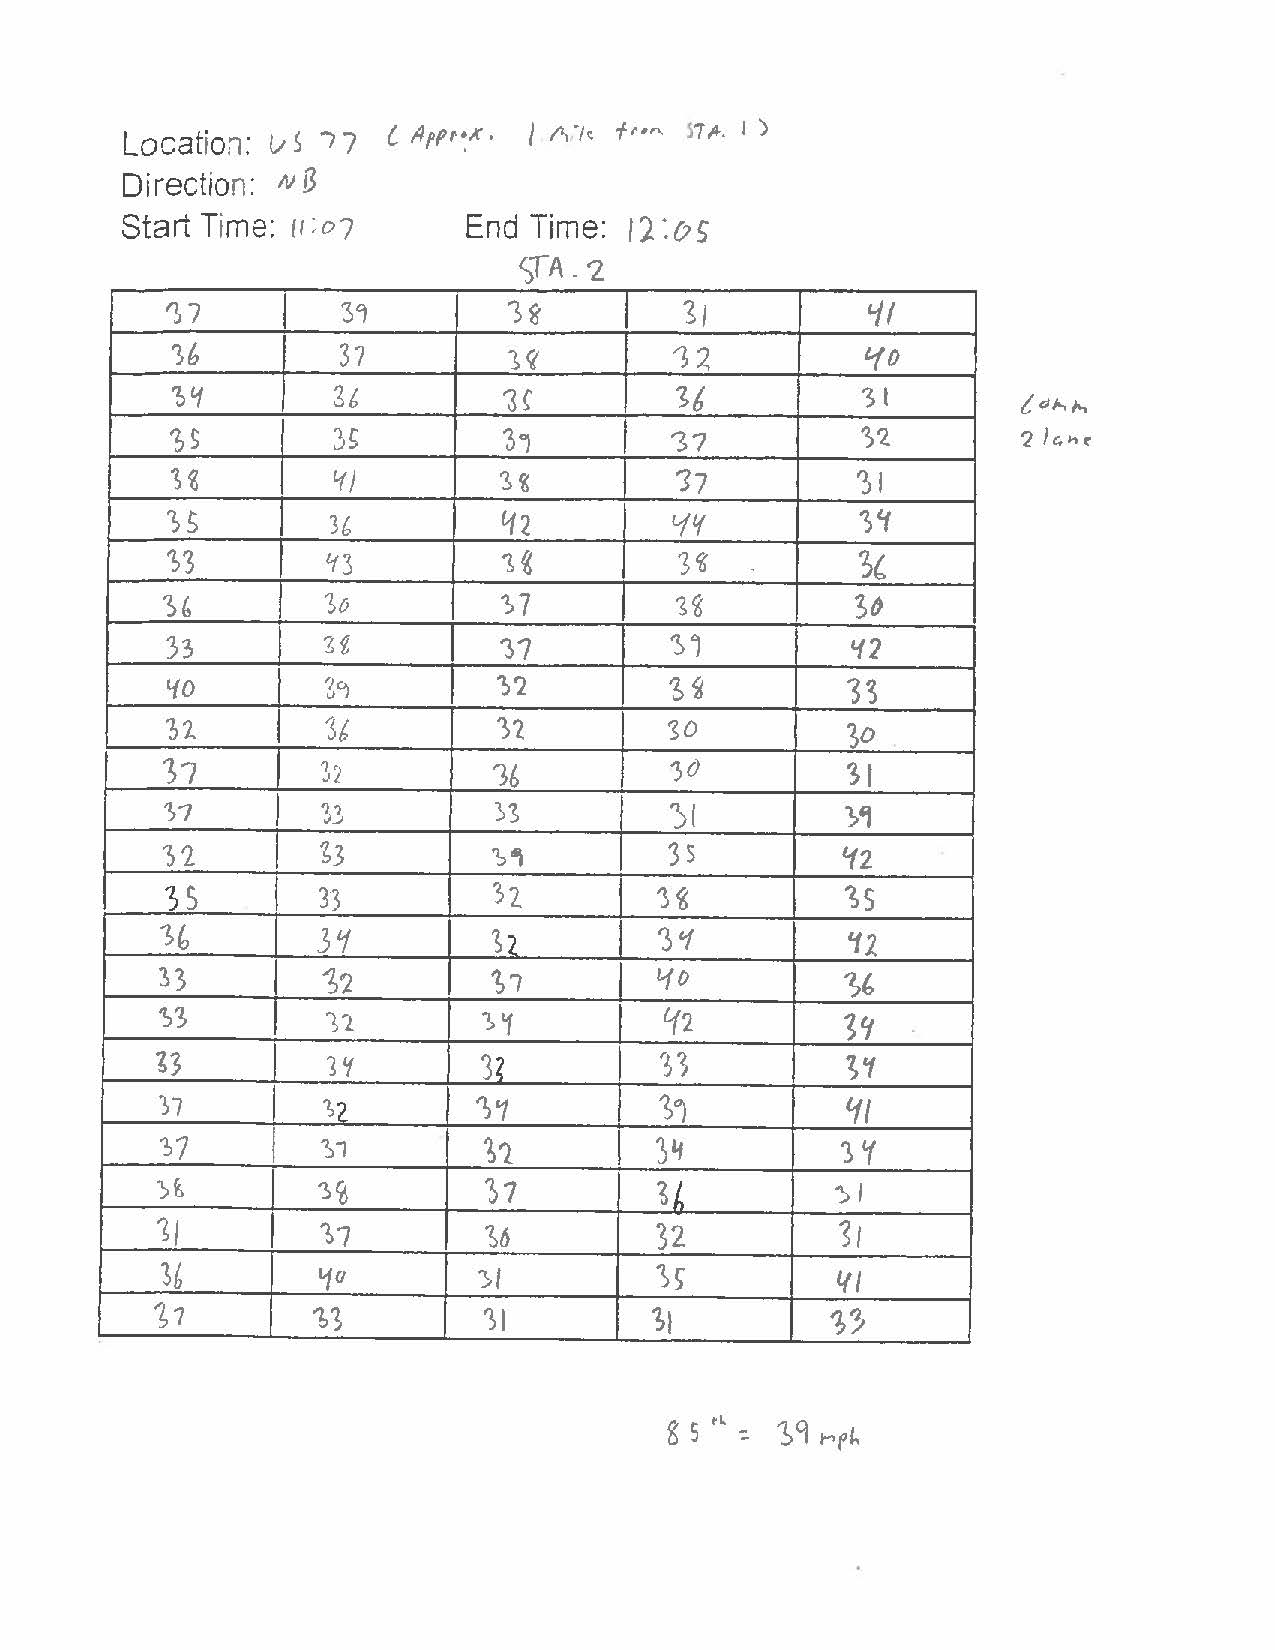 Location: US 77 (Approx. 1 mile from STA. 1)
Direction: NB
Start Time: 11:07 End Time: 12:05
STA. 2
37 39 38 31 41
36 37 38 32 40
34 36 35 36 31 Comm
35 35 39 37 32 2 lane
38 41 38 37 31
35 36 42 44 34
33 43 38 38 36
36 30 37 38 30
33 38 37 39 42
40 39 32 38 33
32 36 32 30 30
37 32 36 30 31
37 33 33 31 39
32 33 39 35 42
35 33 32 38 35
36 34 32 34 42
33 32 37 40 36
33 32 34 42 34
33 34 33 33 34
37 32 34 39 41
37 37 32 34 34
38 38 37 36 31
31 37 30 32 31
36 40 31 35 41
37 33 31 31 33
85th = 39 mph